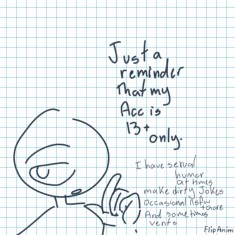 Just a
reminder
That my
Acc is
13+
only.
I have sexual
humor
at times
make dirty Jokes
Occasional
And sometimes
vents
FlipAnim